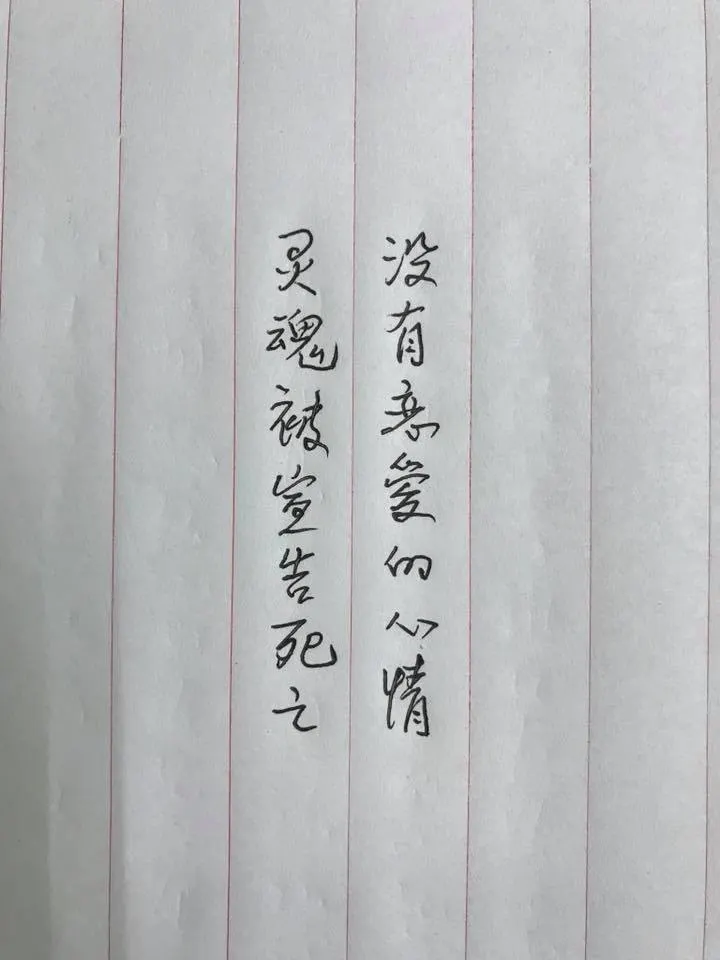 没有恋爱的心情
灵魂被宣告死亡